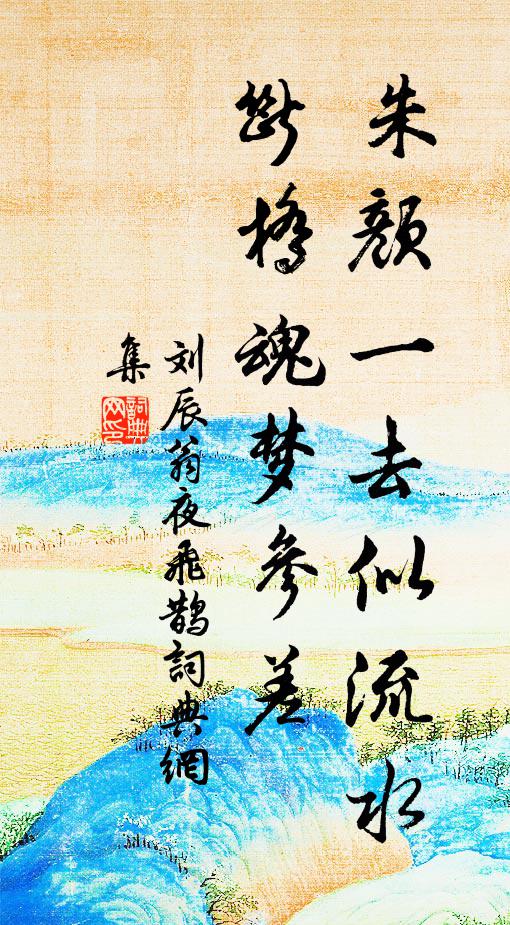 朱颜一去似流水
断桥魂梦参差
刘辰翁夜飞鹊詞典網
集
詞典网印